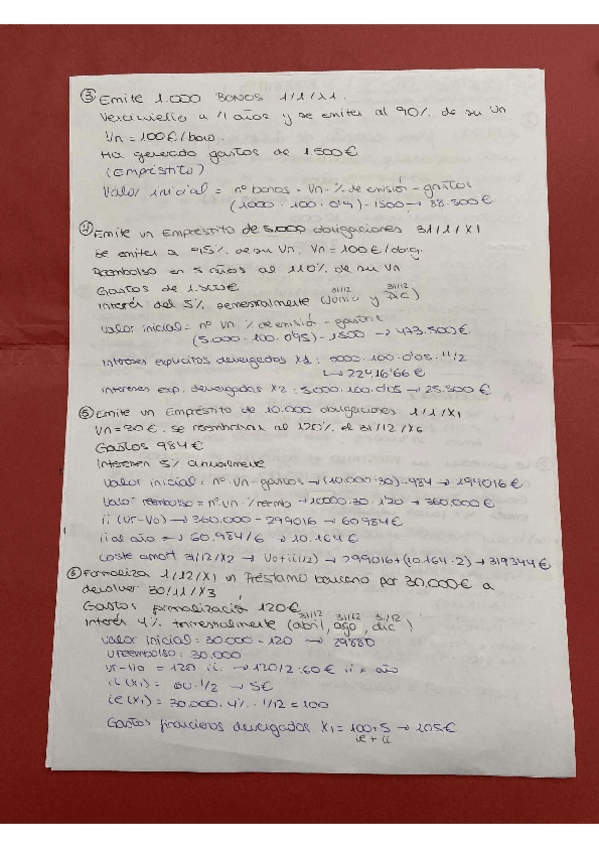 ③ Emite 1.000 BONOS 1/1/X1.
Vencimiento a 4 años y se emiten al 90% de su Vn
Vn = 100€/bono.
Ha generado gastos de 1.500€
(Empréstito)
Valor inicial = nº bonos · Vn · % de emisión - gastos
(1000 · 100 · 0'9) - 1500 → 88.500€
④ Emite un Empréstito de 5.000 obligaciones 31/1/X1
Se emiten a 95% de su Vn, Vn = 100€/oblig.
Reembolso en 5 años al 110% de su Vn
Gastos de 1.500€
31/12 31/12
Interés del 5% semestralmente (Junio y Dic)
Valor inicial = nº Vn % de emisión - gastos
(5.000 · 100 · 0'95) - 1500 → 473.500€
Intereses explícitos devengados X1: 5000 · 100 · 0'05 · 11/12
↳ 22416'66€
intereses exp. devengados X2: 5.000 · 100 · 0'05 → 25.500€
⑤ Emite un Empréstito de 10.000 obligaciones 1/1/X1
Vn = 30€. se reembolsan al 120% el 31/12/X6
Gastos 984€
Intereses 5% anualmente
Valor inicial = nº Vn - gastos → (10.000 · 30) - 984 → 299016€
Valor reembolso = nº Vn · % reemb → 10000 · 30 · 1'20 → 360.000€
ii (Vr - Vo) → 360.000 - 299016 → 60984€
ii al año → 60.984/6 → 10.164€
Coste amort 31/12/X2 → Vo + ii(1/2) → 299016 + (10.164 · 2) → 319344€
⑥ Formaliza 1/12/X1 un Préstamo bancario por 30.000€ a
devolver 30/11/X3
Gastos formalización 120€
31/12 31/12 31/12
Interés 4% trimestralmente (abril, ago, dic)
Valor inicial = 30.000 - 120 → 29880
Vreembolso: 30.000
Vr - Vo = 120 ii. → 120/2 = 60€ ii x año
ii (X1) = 60 · 1/12 → 5€
ie (X1) = 30.000 · 4% · 1/12 = 100
Gastos financieros devengados X1 = 100 + 5 → 105€
ie + ii